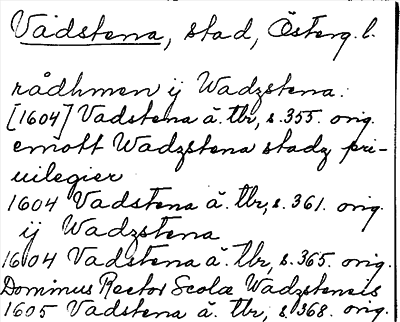 Vadstena, stad, Österg. l.
rådhmen ij Wadzstena.
[1604] Vadstena ä. tbr, s. 355. orig.
emott Wadzstena stadz pri-
uilegier
1604 Vadstena ä. tbr, s. 361. orig.
ij Wadzstena
1604 Vadstena ä. tbr, s. 365. orig.
Dominus Rector Scolæ Wadzstensis
1605 Vadstena ä. tbr, s. 368. orig.